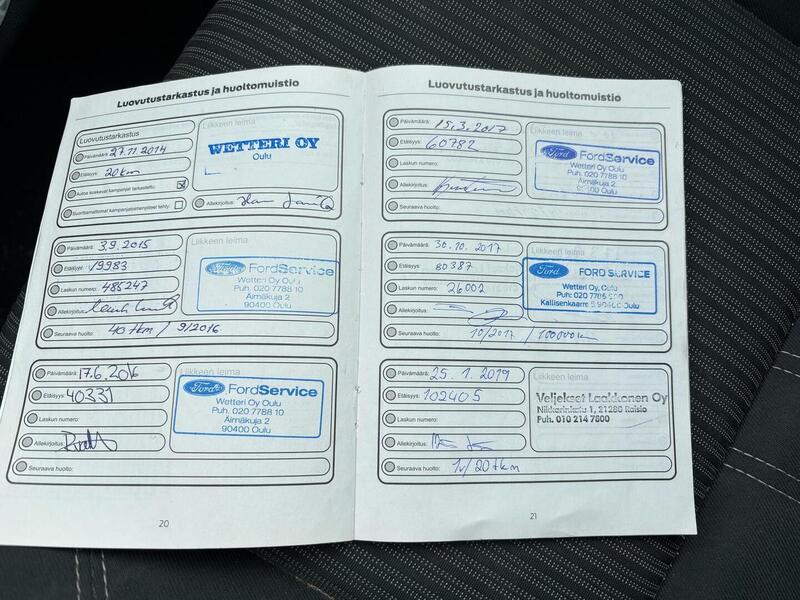 Luovutustarkastus ja huoltomuistio
Luovutustarkastus
Päivämäärä: 27.11.2014
Etäisyys: 20km
Autoa koskevat kampanjat tarkastettu:
Suorittamattomat kampanjatoimenpiteet tehty:
Liikkeen leima
WETTERI OY
Oulu
Allekirjoitus:
Päivämäärä: 3.9.2015
Etäisyys: 19983
Laskun numero: 485247
Allekirjoitus:
Seuraava huolto: 40 tkm / 9/2016
Liikkeen leima
Ford FordService
Wetteri Oy Oulu
Puh. 020 7788 10
Äimäkuja 2
90400 Oulu
Päivämäärä: 17.6.2016
Etäisyys: 40331
Laskun numero:
Allekirjoitus:
Seuraava huolto:
Liikkeen leima
Ford FordService
Wetteri Oy Oulu
Puh. 020 7788 10
Äimäkuja 2
90400 Oulu
20
Luovutustarkastus ja huoltomuistio
Päivämäärä: 15.3.2017
Etäisyys: 60782
Laskun numero:
Allekirjoitus:
Seuraava huolto:
Liikkeen leima
Ford FordService
Wetteri Oy Oulu
Puh. 020 7788 10
Äimäkuja 2
90400 Oulu
Päivämäärä: 30.10.2017
Etäisyys: 80387
Laskun numero: 26002
Allekirjoitus:
Seuraava huolto: 10/2017 / 100000km
Liikkeen leima
Ford FORD SERVICE
Wetteri Oy, Oulu
Puh: 020
90400 Oulu
Päivämäärä: 25.1.2019
Etäisyys: 102405
Laskun numero:
Allekirjoitus:
Seuraava huolto: 1v/20tkm
Liikkeen leima
Veljekset Laakkonen Oy
Nikkarinkatu 1, 21280 Raisio
Puh. 010 214 7800
21